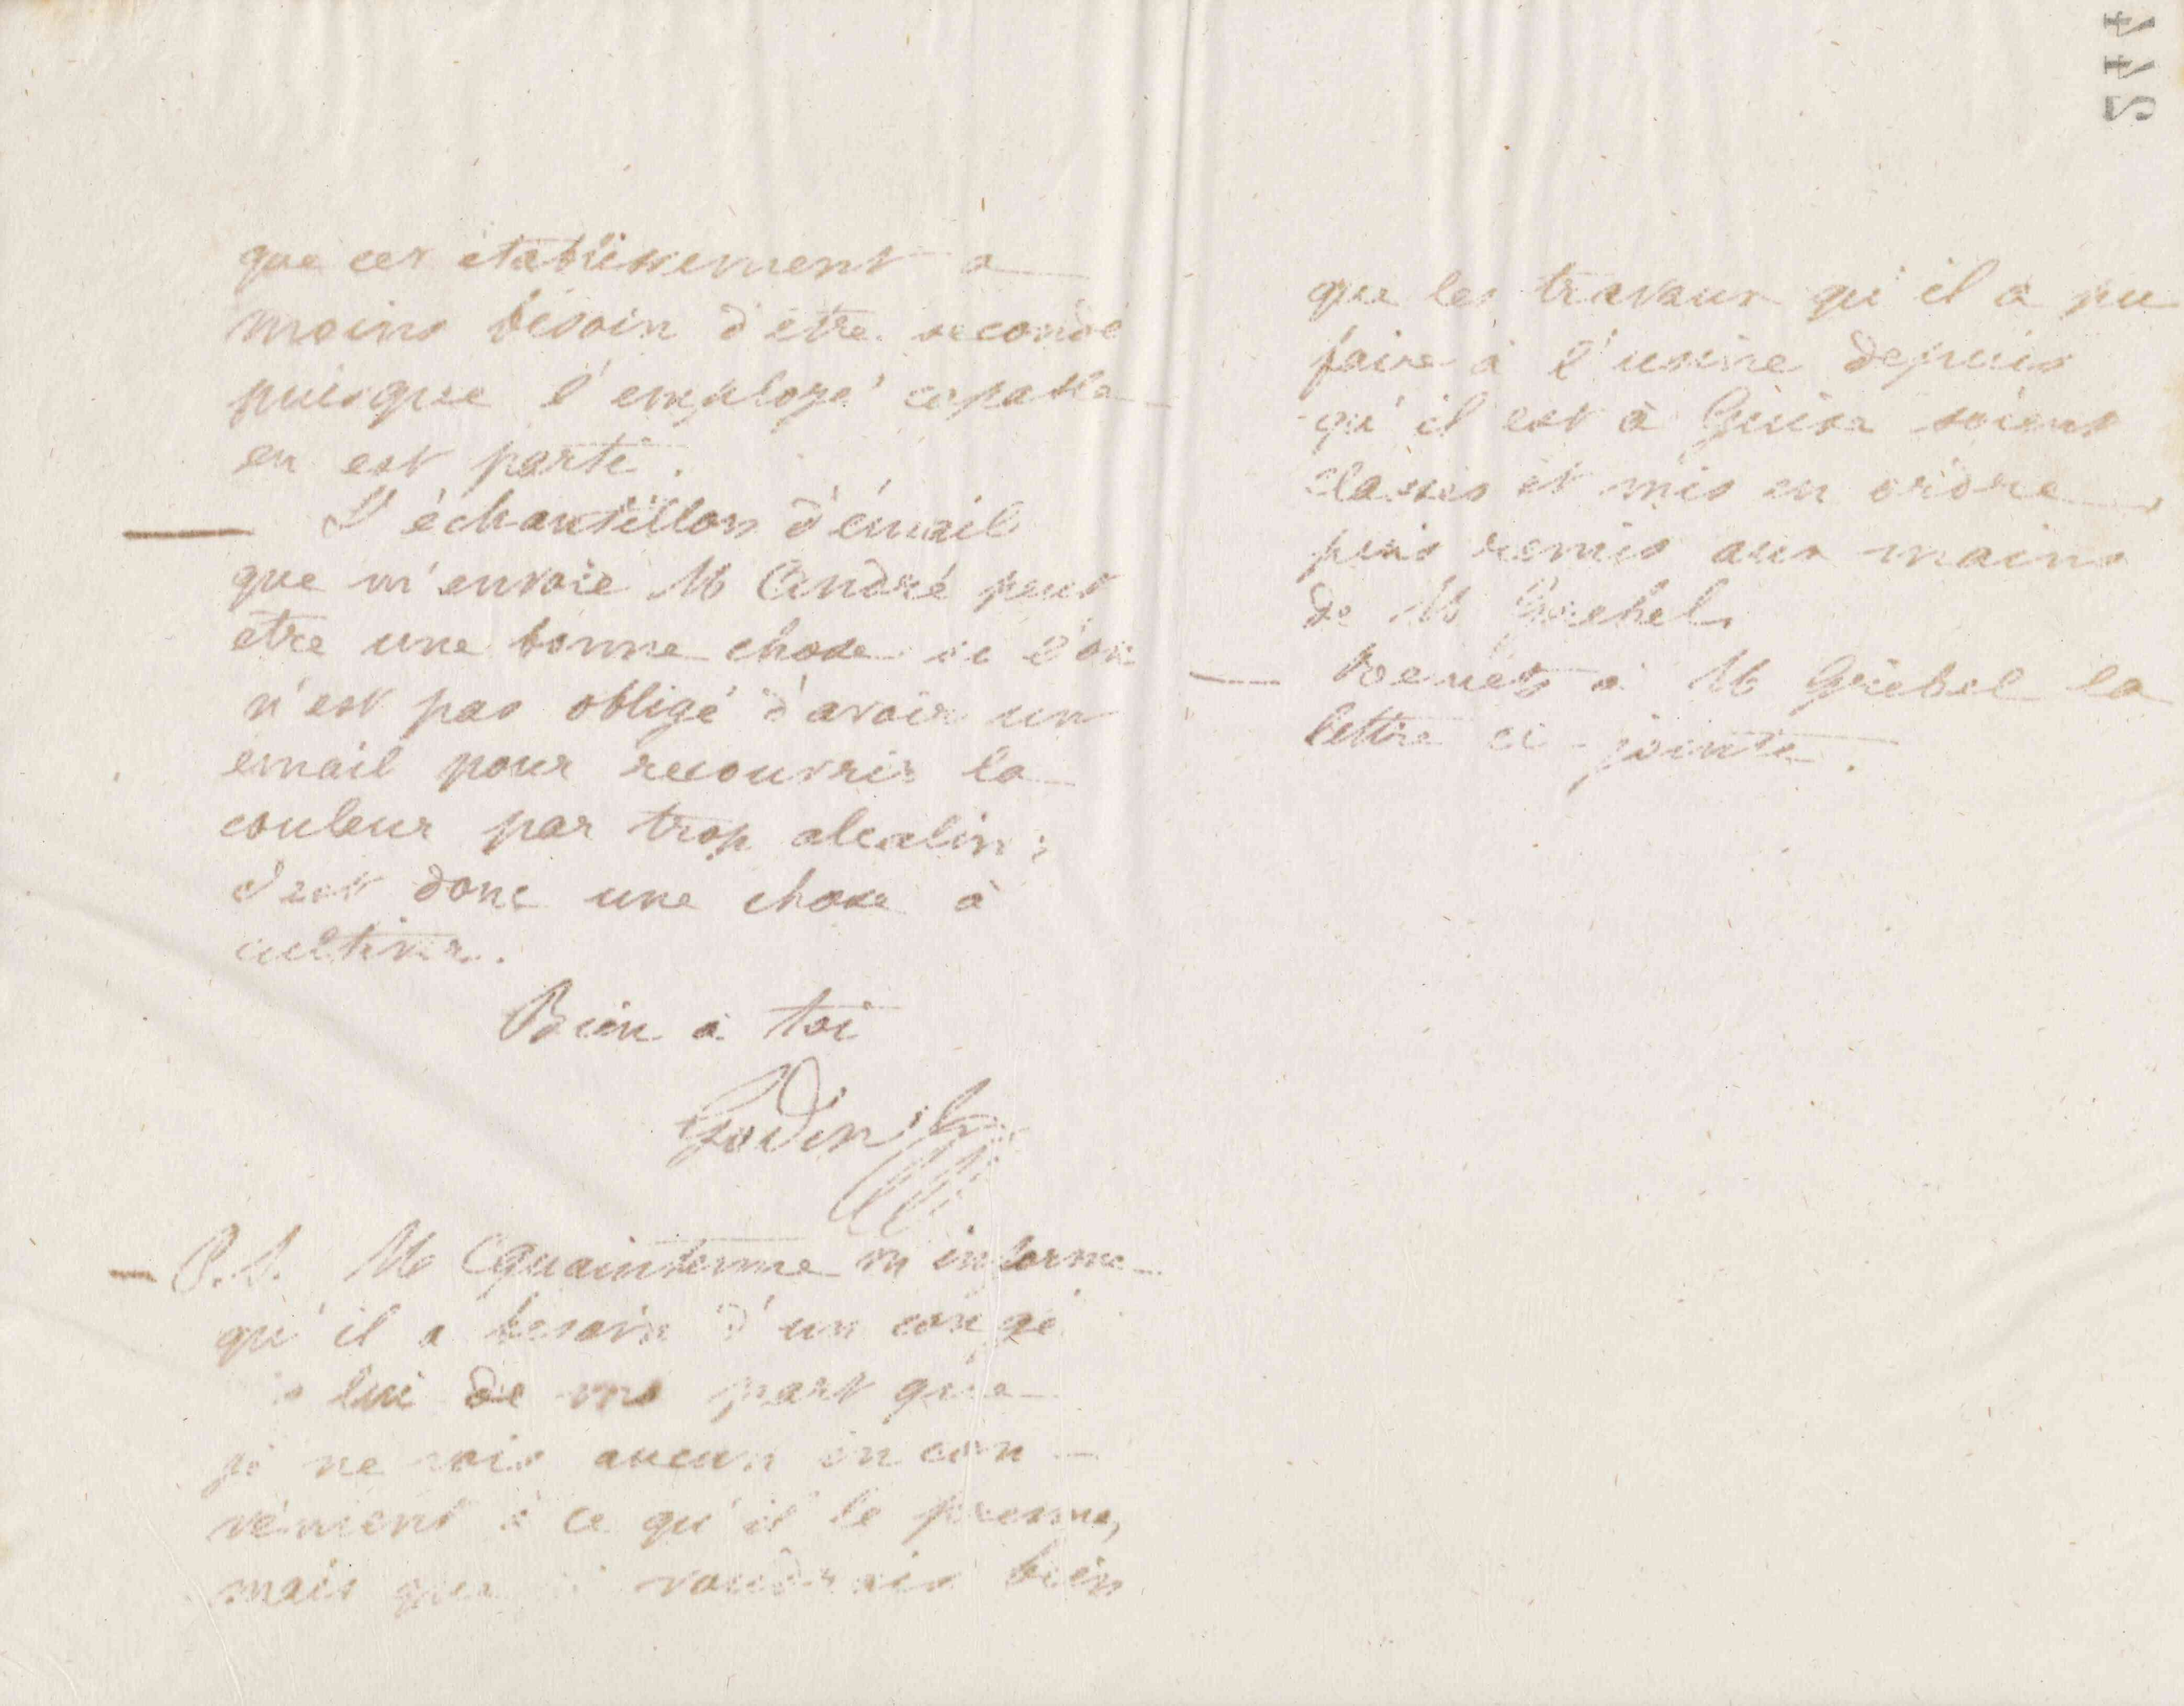 que cet établissement a
moins besoin d'être secondé
puisque l'employé capable
en est parti.
— L'échantillon d'émail
que m'envoie M André peut
etre une bonne chose si l'on
n'est pas obligé d'avoir un
email pour recouvrir la
couleur par trop alcalin;
c'est donc une chose à
cultiver.
Bien à toi
Godin
— P.S. M Cquaintenne m'informe
qu'il a besoin d'un congé
lui de ma part que
je ne vois aucun incon-
vénient à ce qu'il le prenne,
mais que voudrais bien
que les travaux qu'il a pu
faire à l'usine depuis
qu'il est à Guise soient
classés et mis en ordre
puis remis aux mains
de M Grebel.
— à M Grebel la
lettre ci-jointe.